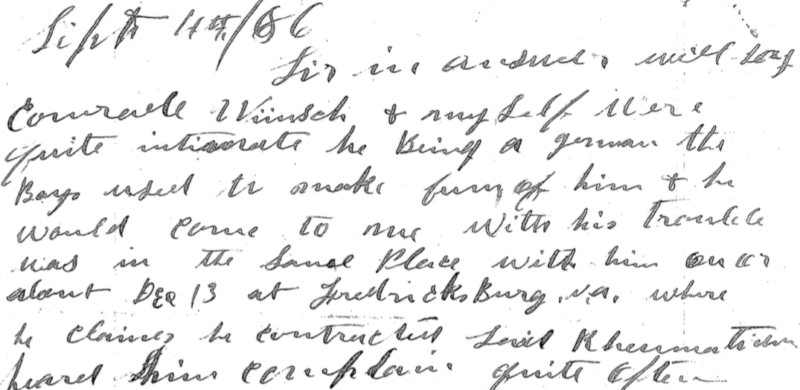 Sept 4th/86
Sir in answer will say
Comrade Wünsch & my self were
quite intimate he Being a german the
Boys used to make fun of him & he
would come to me with his trouble
was in the Same Place with him on or
about Dec 13 at FredricksBurg, va. where
he claims he contracted Said Rheumatism
heard him complain quite often